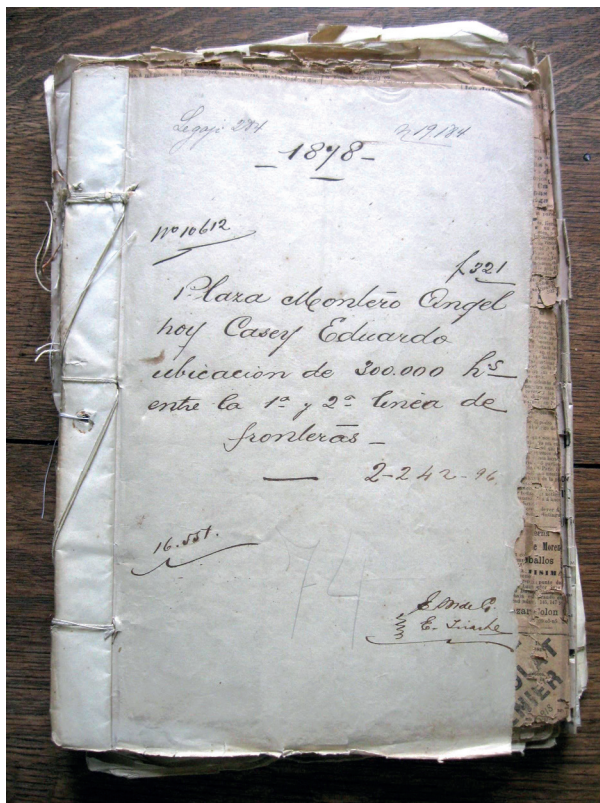 Legajo 284
1878-
Nº 10612
f 321
Plaza Montero Angel
hoy Casey Eduardo
ubicacion de 300.000 hs
entre la 1ª y 2ª linea de
fronteras-
2-242-96
16.551.
74
E.